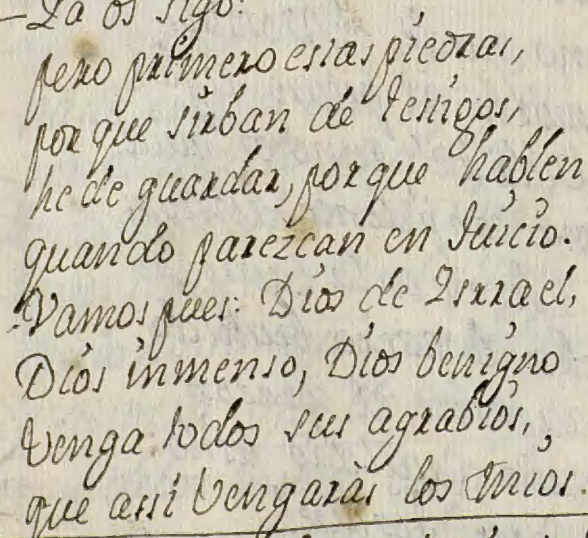 -Ya os sigo:
pero primero estas piedras,
porque sirban de testigos,
he de guardar, porque hablen
quando parezcan en Juicio.
-Vamos pues: Dios de Isrrael,
Dios inmenso, Dios benigno
venga todos sus agrabios,
que assi vengaràs los mios.